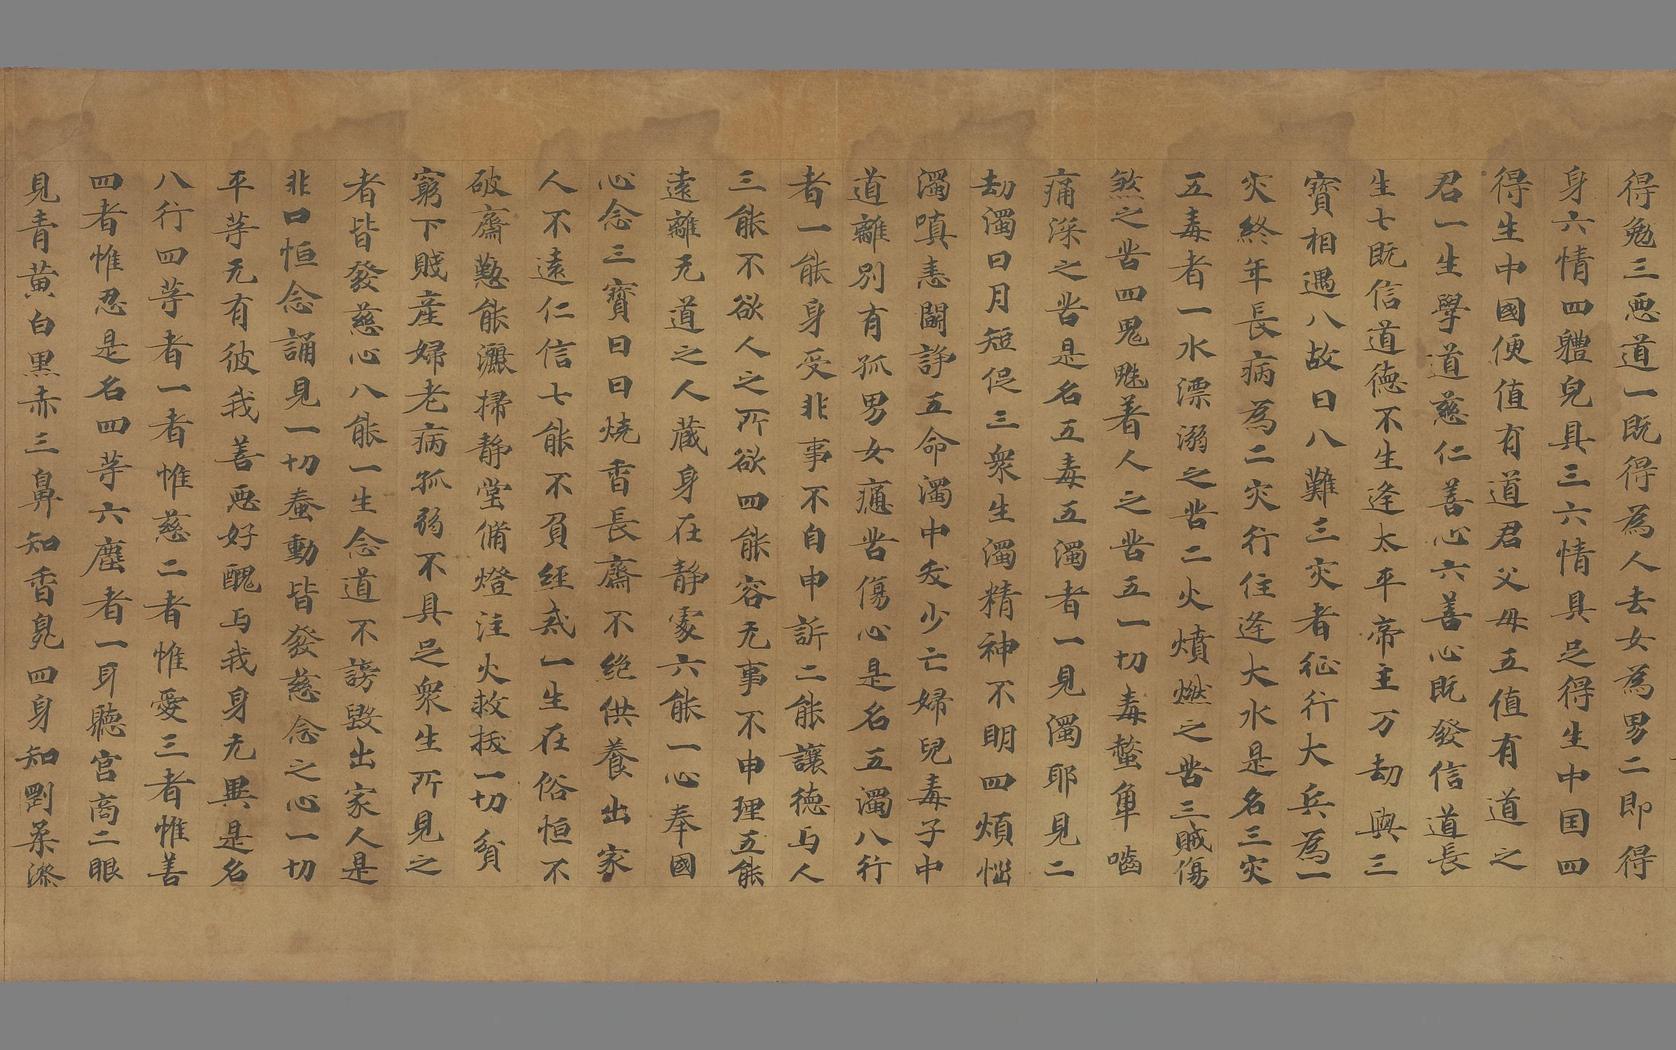 得勉三悪道一既得為人去女為男二即得
身六情四軆皃具三六情具足得生中国四
得生中國便值有道君父母五值有道之
君一生學道慈仁善心六善心既發信道長
生七既信道德不生逢太平帝主万劫與三
寶相遇八故曰八難三灾者征行大兵為一
灾終年長病為二灾行住逢大水是名三灾
五毒者一水漂溺之苦二火燌燃之苦三賊傷
煞之苦四鬼魅著人之苦五一切毒螫隼嚙
痛深之苦是名五毒五濁者一見濁耶見二
劫濁日月短促三衆生濁精神不明四煩惱
濁嗔恚闘諍五命濁中夭少亡婦兒毒子中
道離別有孤男女痛苦傷心是名五濁八行
者一能身受非事不自申訢二能讓德与人
三能不欲人之所欲四能容无事不申理五能
遠離无道之人蔵身在静處六能一心奉國
心念三寶日日燒香長齋不絶供養出家
人不遠仁信七能不負經戒一生在俗恒不
破齋懃能灑掃静堂備燈注火救拔一切貧
窮下賤産婦老病孤弱不具足衆生所見之
者皆發慈心八能一生念道不謗毀出家人是
非口恒念誦見一切蠢動皆發慈念之心一切
平等无有彼我善悪好醜与我身无異是名
八行四等者一者惟慈二者惟愛三者惟善
四者惟忍是名四等六塵者一耳聽宮商二眼
見青黃白黒赤三鼻知香臰四身知剛柔澁